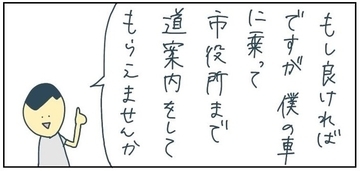 もし良ければ
ですが 僕の車
に乗って
市役所まで
道案内をして
もらえませんか